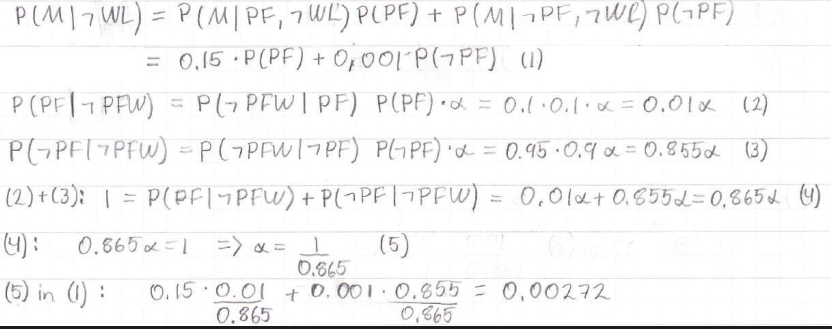 P(M|¬WL) = P(M|PF,¬WL)P(PF) + P(M|¬PF,¬WL)P(¬PF)
= 0,15 · P(PF) + 0,001 · P(¬PF) (1)
P(PF|¬PFW) = P(¬PFW|PF) P(PF)·α = 0.1·0.1·α = 0.01α (2)
P(¬PF|¬PFW) = P(¬PFW|¬PF) P(¬PF)·α = 0.95·0.9α = 0.855α (3)
(2)+(3): 1 = P(PF|¬PFW) + P(¬PF|¬PFW) = 0,01α + 0.855α = 0,865α (4)
(4): 0.865α = 1 => α = 1/0.865 (5)
(5) in (1): 0.15 · 0.01/0.865 + 0.001 · 0.855/0,865 = 0,00272